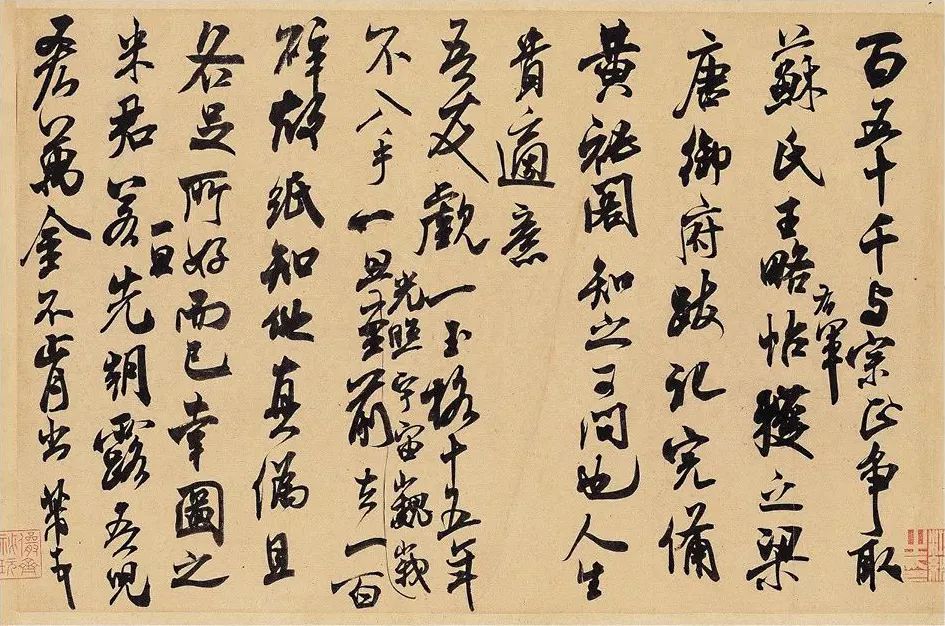 百五十千与宗正争取
蘇氏王略帖右軍獲之梁
唐御府跋記完備
黄秘閣知之可問也人生
貴適意
吾友覷一玉格十五年
不入手一旦光照宇宙巍峩至前去一百
碎故紙知他真偽且
各足所好而已幸圖之
米君若一旦先朝露吾兒
吝萬金不肯出芾